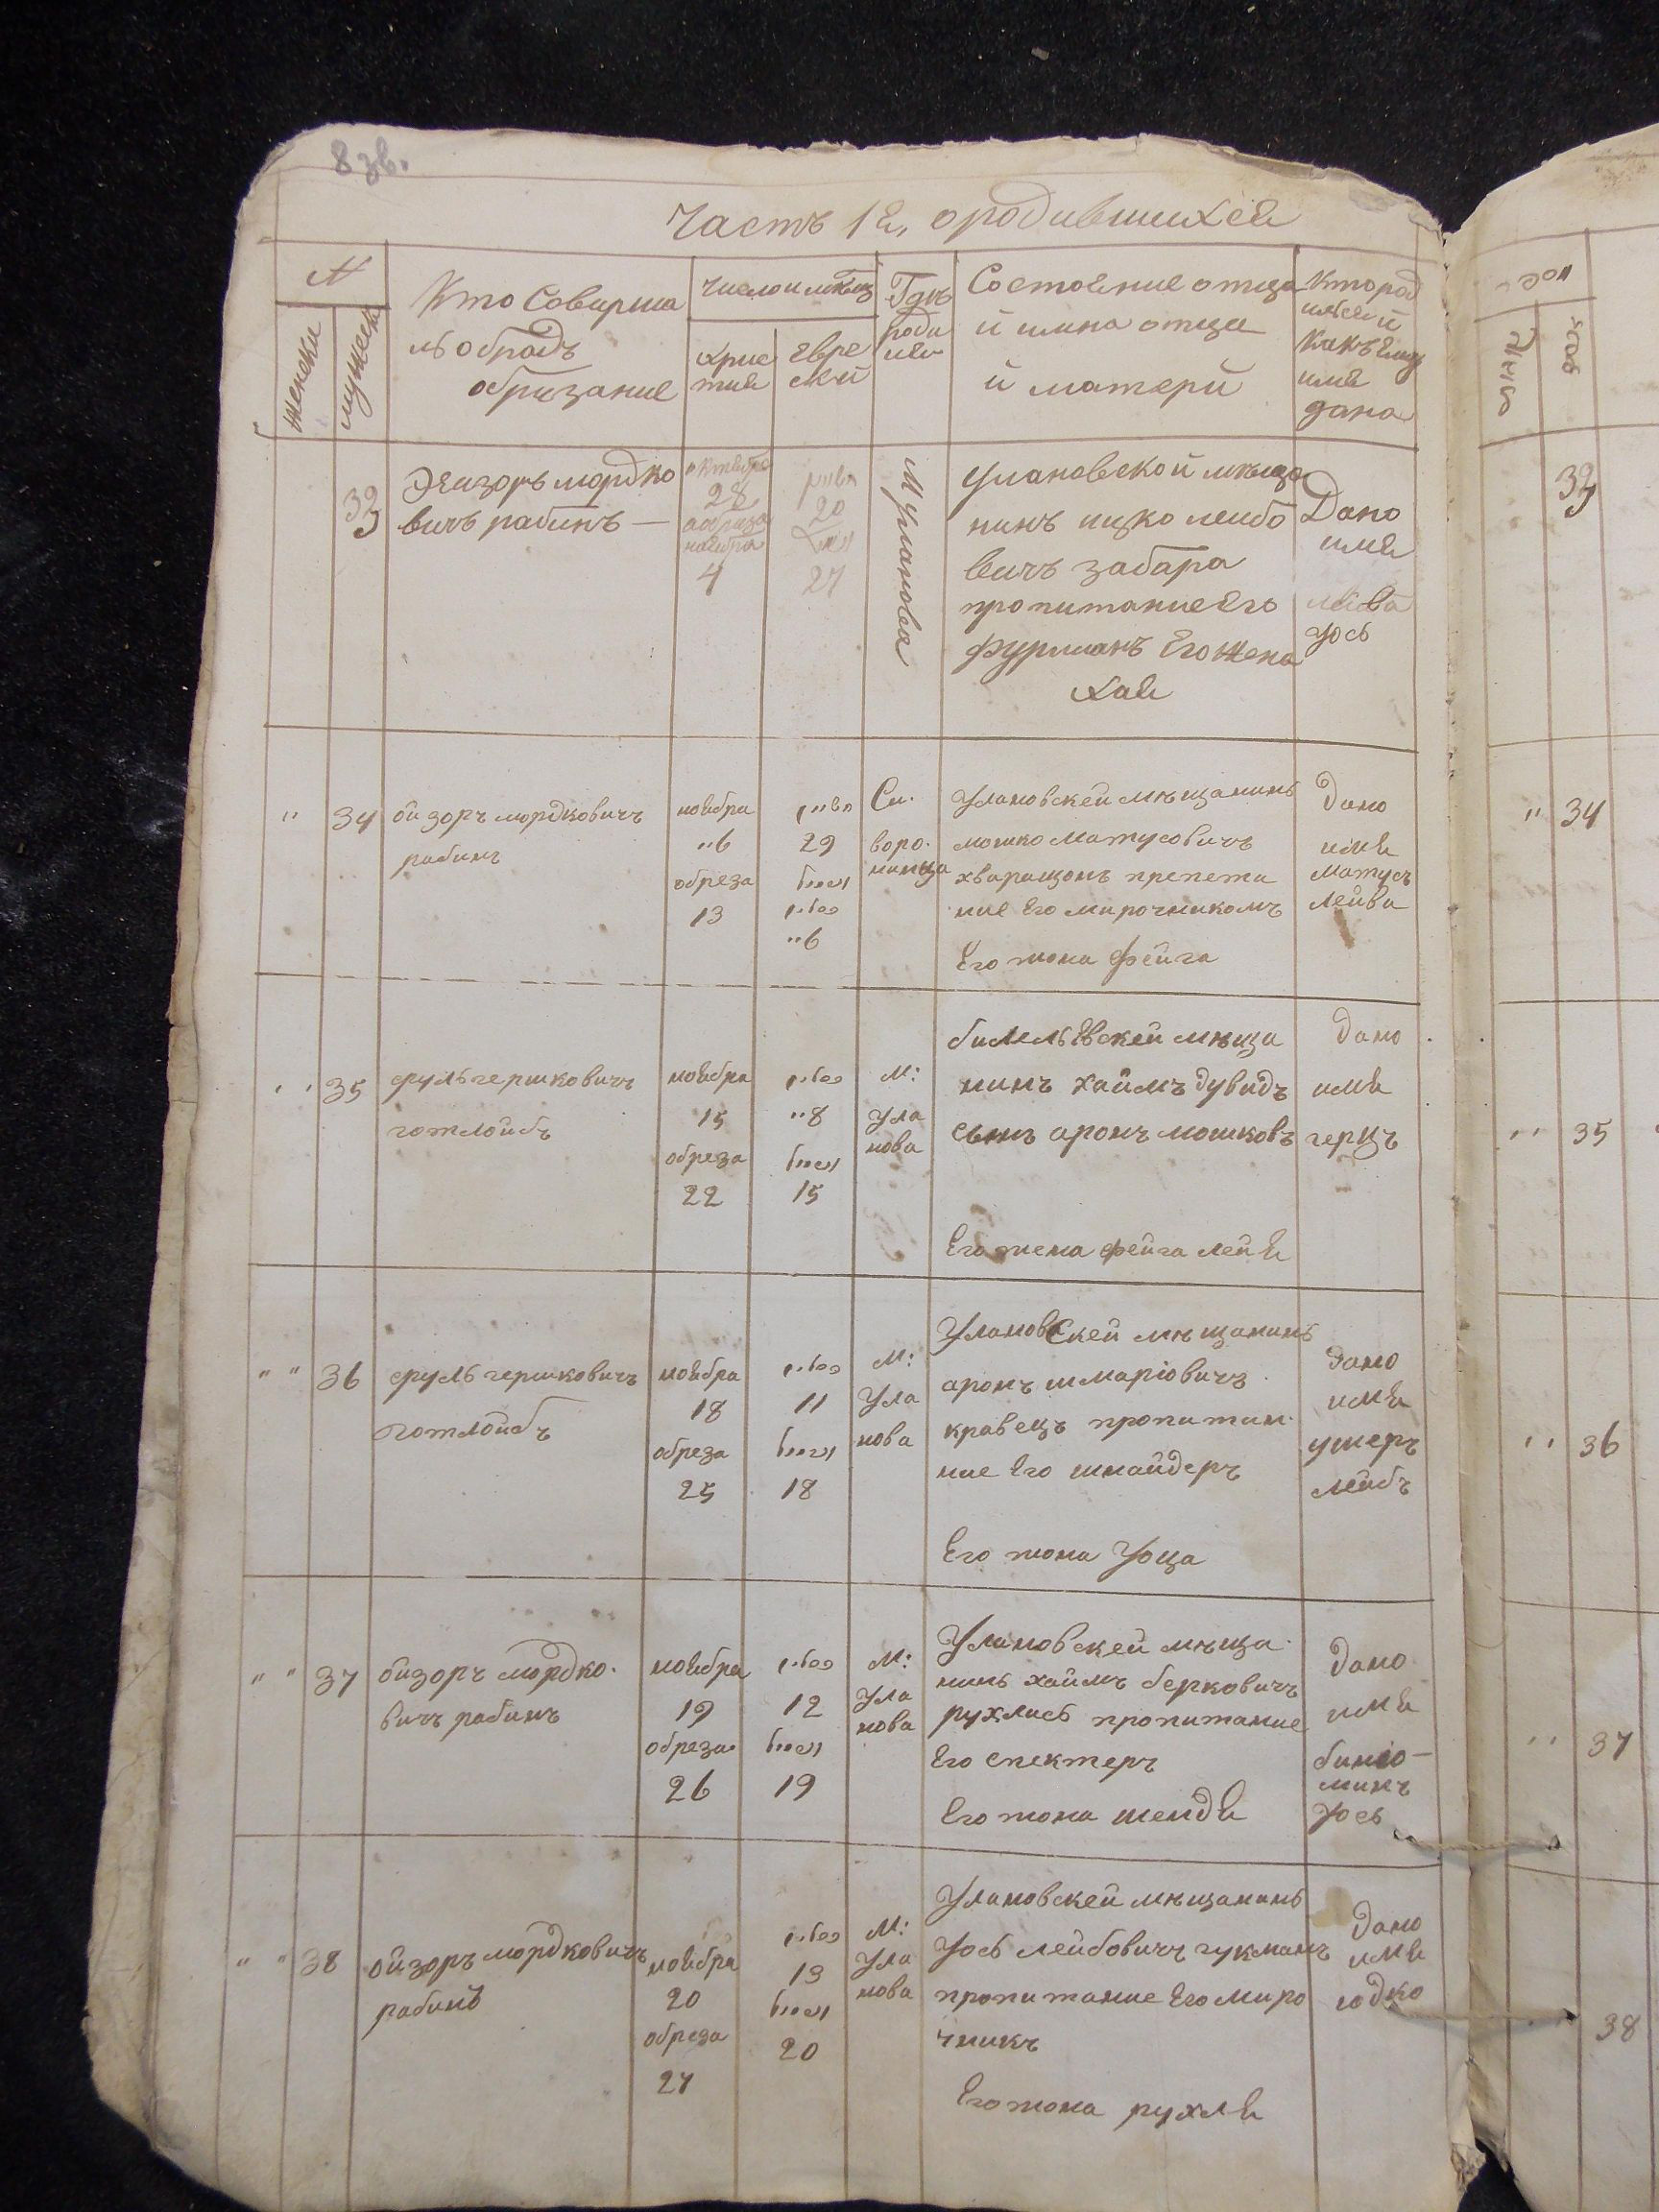 8 зв.
Часть 1я, о родившихся
№
женски
мужеск
Кто Соверша
лъ обрадъ
обризание
число и мѣсяц
хрис
тия
Евре
ский
Гдѣ
роди
лся
Состояние отца
й имна отца
й матери
Кто род
ился й
какъ Ему
имя
дано
33
Элизоръ мордко
вичъ рабинъ —
октебра
28
обреза
ноебра
4
חשון
20
27
М Уланова
Улановской мѣща
нинъ ицко леибо
вичъ забара
пропитание Его
фурманъ Его жена
хая
Дано
имя
лейва
Уось
" 34
ойзоръ мордковичъ
рабинъ
ноября
"6
обреза
13
חשון
29
כסלו
"6
Сл.
воро.
нинца
Улановскей мѣщанинъ
мошко матусовичъ
хваращонъ препета
ние Его мирочникомъ
Его жона Фейга
дано
имя
матусъ
лейва
" 35
сруль гершковичъ
готлойбъ
ноября
15
обреза
22
כסלו
"8
15
М:
Ула
нова
билеловскей мѣща
нинъ хаимъ дувидъ
сынъ аронъ мошковъ
Его жена фейга лейя
дано
имя
герцъ
" " 36
сруль гершковичъ
готлойбъ
ноября
18
обреза
25
כסלו
11
18
М:
Ула
нова
Улановскей мѣщанинъ
аронъ шмаріовичъ
кравецъ пропитан
ние Его шнайдеръ
Его жона Уоца
дано
имя
ушеръ
лейбъ
" " 37
ойзоръ мордко.
вичъ рабинъ
ноября
19
обреза
26
כסלו
12
19
М:
Ула
нова
Улановскей мѣща.
нинъ хаимъ берковичъ
рухлись пропитание
Его спектеръ
Его жона шендя
дано
имя
бинїо—
минъ
Уось
" " 38
ойзоръ мордковичъ
рабинъ
ноября
20
обреза
27
כסלו
13
20
М:
Ула
нова
Улановскей мѣщанинъ
Уось лейбовичъ гукманъ
пропитание Его миро
чникъ
Его жона рухля
дано
имя
юдко
33
" 34
" 35
" 36
" 37
38